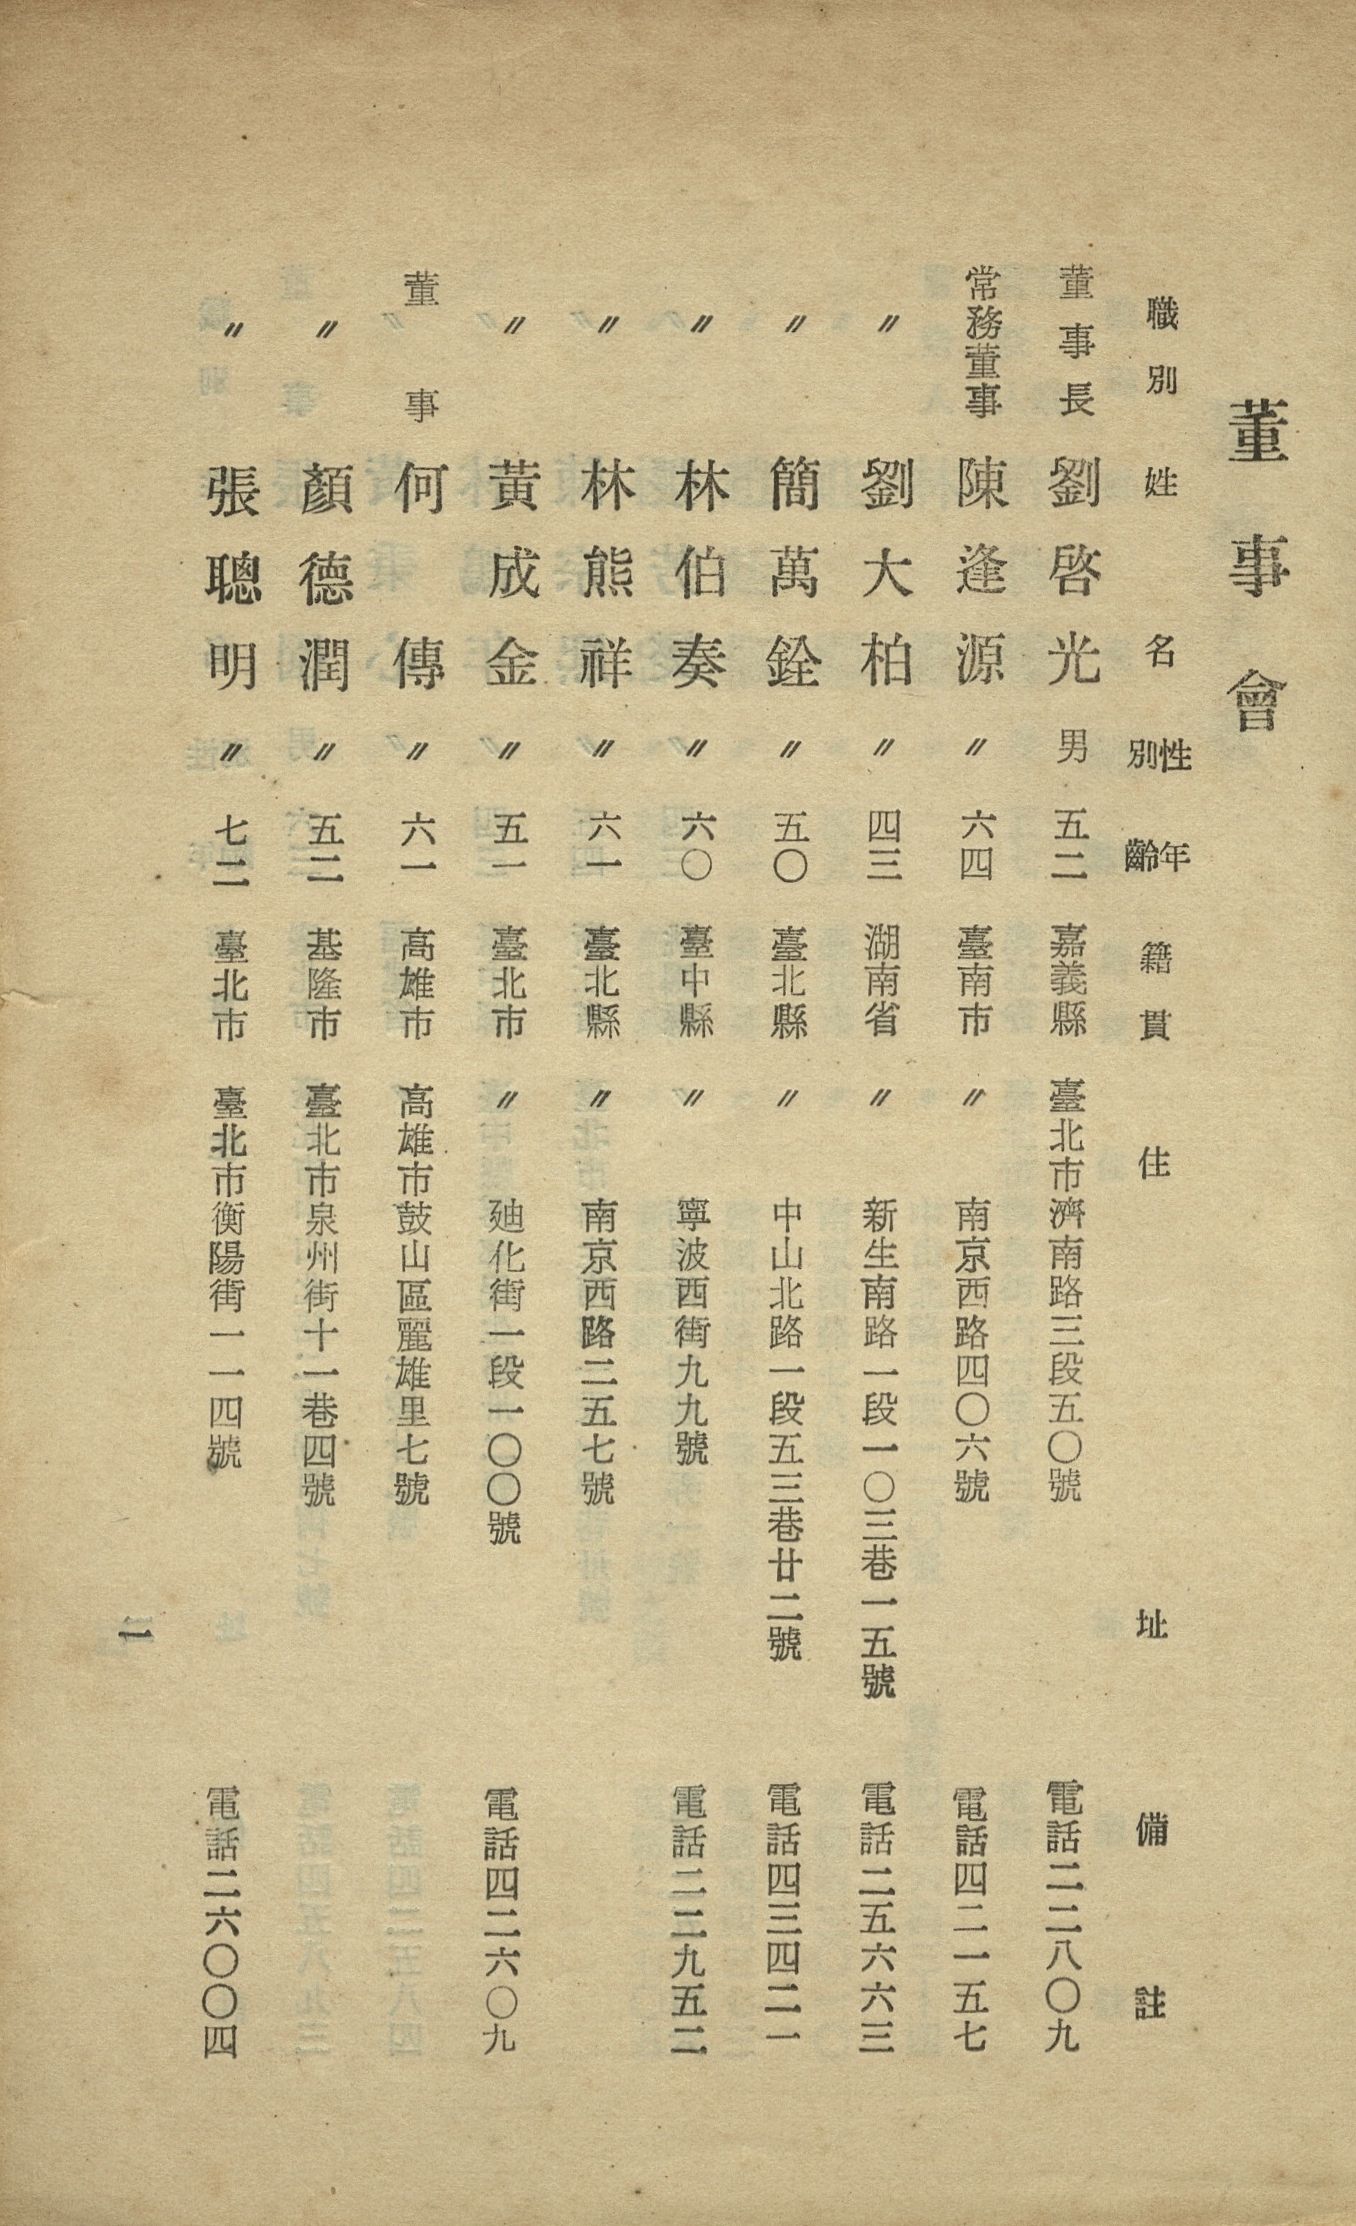 董事會
職別 姓名 性別 年齡 籍貫 住址 備註
董事長 劉啓光 男 五二 嘉義縣 臺北市濟南路三段五〇號 電話二二八〇九
常務董事 陳逢源 〃 六四 臺南市 〃 南京西路四〇六號 電話四二一五七
〃 劉大柏 〃 四三 湖南省 〃 新生南路一段一〇三巷一五號 電話二五六六三
〃 簡萬銓 〃 五〇 臺北縣 〃 中山北路一段五三巷廿二號 電話四三四二一
〃 林伯奏 〃 六〇 臺中縣 〃 寧波西街九九號 電話二二九五二
〃 林熊祥 〃 六一 臺北縣 〃 南京西路二五七號
〃 黃成金 〃 五一 臺北市 〃 廸化街一段一〇〇號 電話四二六〇九
董事 何傳 〃 六一 高雄市 高雄市鼓山區麗雄里七號
〃 顏德潤 〃 五二 基隆市 臺北市泉州街十一巷四號
〃 張聰明 〃 七二 臺北市 臺北市衡陽街一一四號 電話二六〇〇四